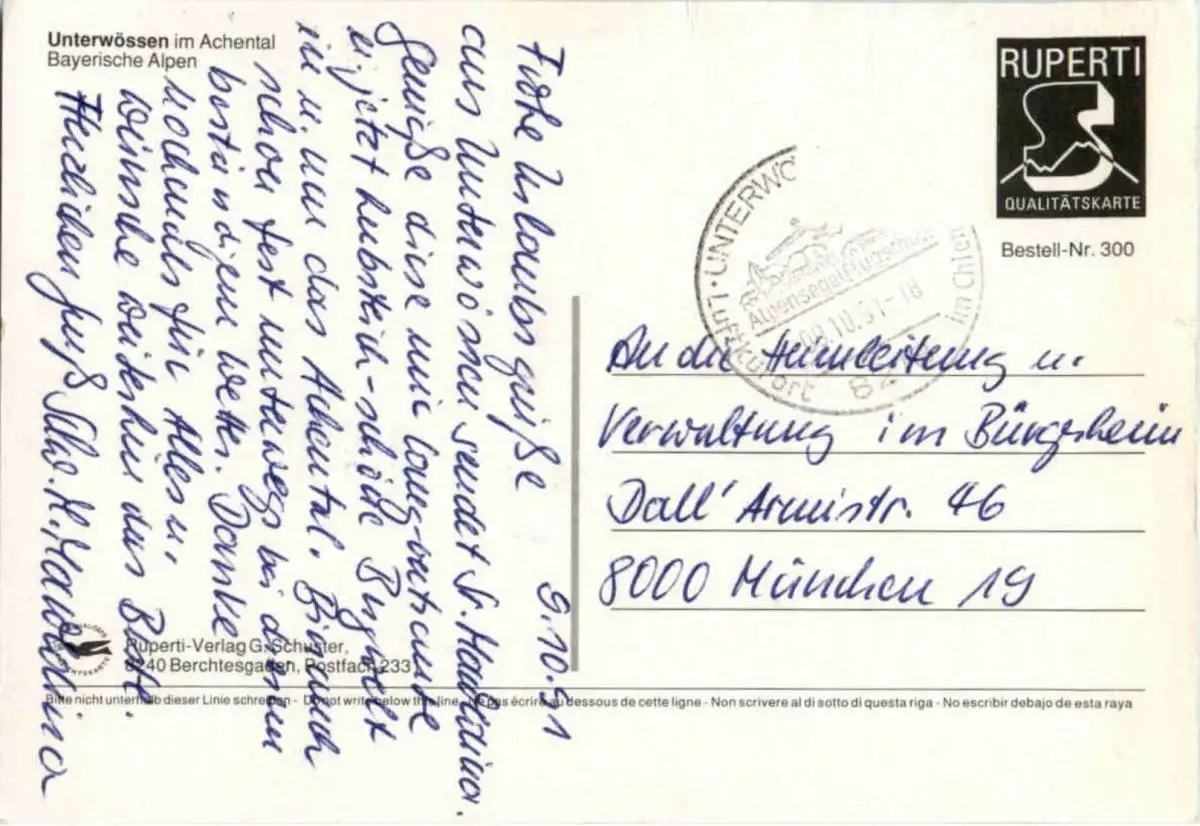 Unterwössen im Achental
Bayerische Alpen
9.10.91
Frohe Urlaubsgrüße
aus Unterwössen sendet Sr. Mawelina.
Genieße diese mir lang-
u. jetzt herbstlich-schöne Bergwelt
in u. um das Achental. Bin auch
schon fest unterwegs bei dem
beständigem Wetter. Danke
nochmals für Alles u.
wünsche weiterhin das Beste.
Herzlichen Gruß Schw. M.
Ruperti-Verlag G. Schuster,
8240 Berchtesgaden, Postfach 233
Bitte nicht unterhalb dieser Linie schreiben - Do not write below this line - Ne pas écrire au dessous de cette ligne - Non scrivere al di sotto di questa riga - No escribir debajo de esta raya
RUPERTI
QUALITÄTSKARTE
Bestell-Nr. 300
Luftkurort · UNTERWÖ
Alpensegelflugschule
09.10.91-18
82
im Chiem
An die Heimleitung u.
Verwaltung im Bürgerheim
Dall' Armistr. 46
8000 München 19